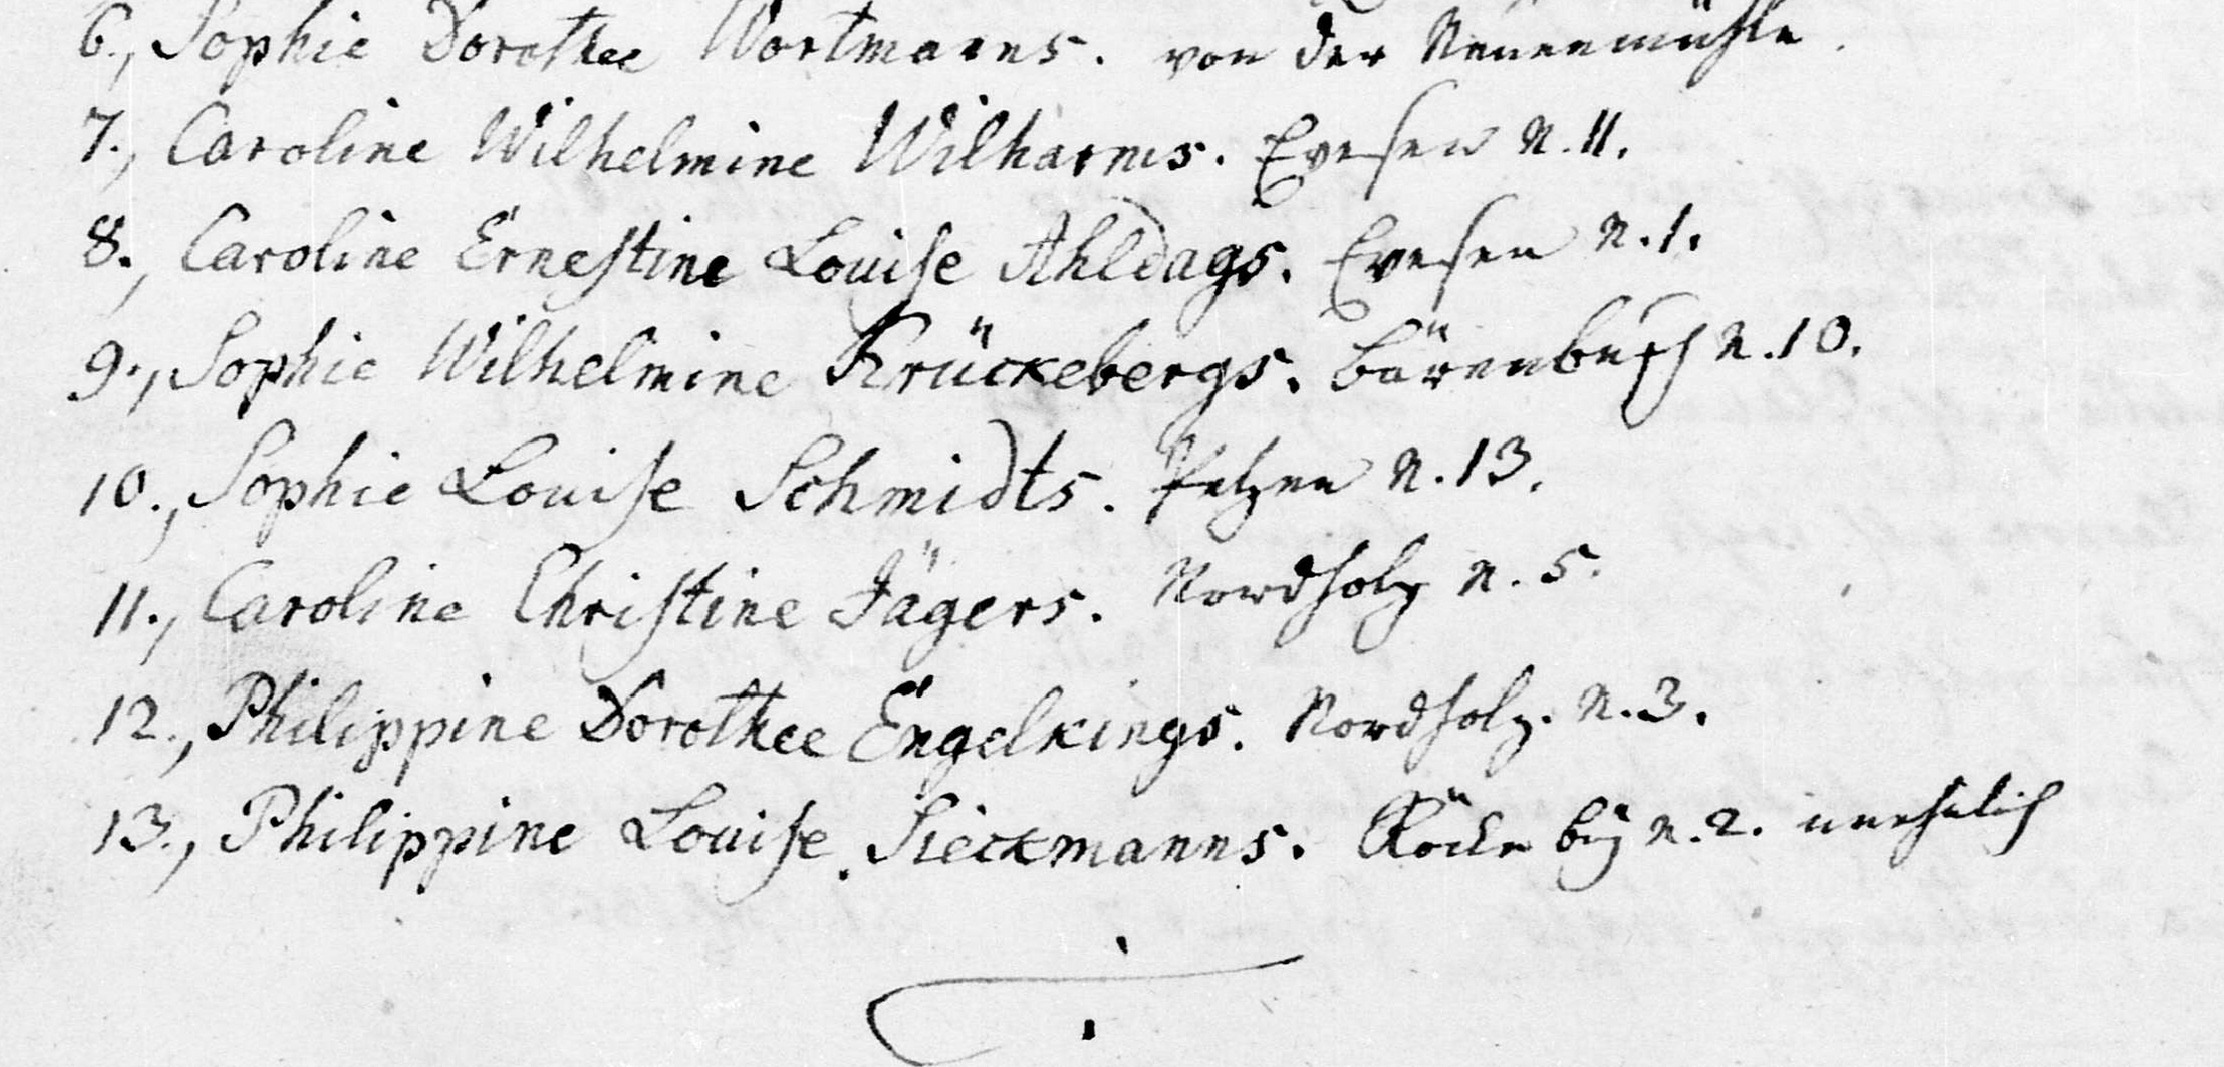 6., Sophie Dorothee Wortmanns. von der Neuenmühle.
7., Caroline Wilhelmine Wilharms. Evesen N. 11.
8., Caroline Ernestine Louise Ahldags. Evesen N. 1.
9., Sophie Wilhelmine Krückebergs. Bärenbusch N. 10.
10., Sophie Louise Schmidts. Petzen N. 13.
11., Caroline Christine Jägers. Nordholz N. 5.
12., Philippine Dorothee Engelkings. Nordholz. N. 3.
13., Philippine Louise Sieckmanns. Röcke bey N. 2. unehelich